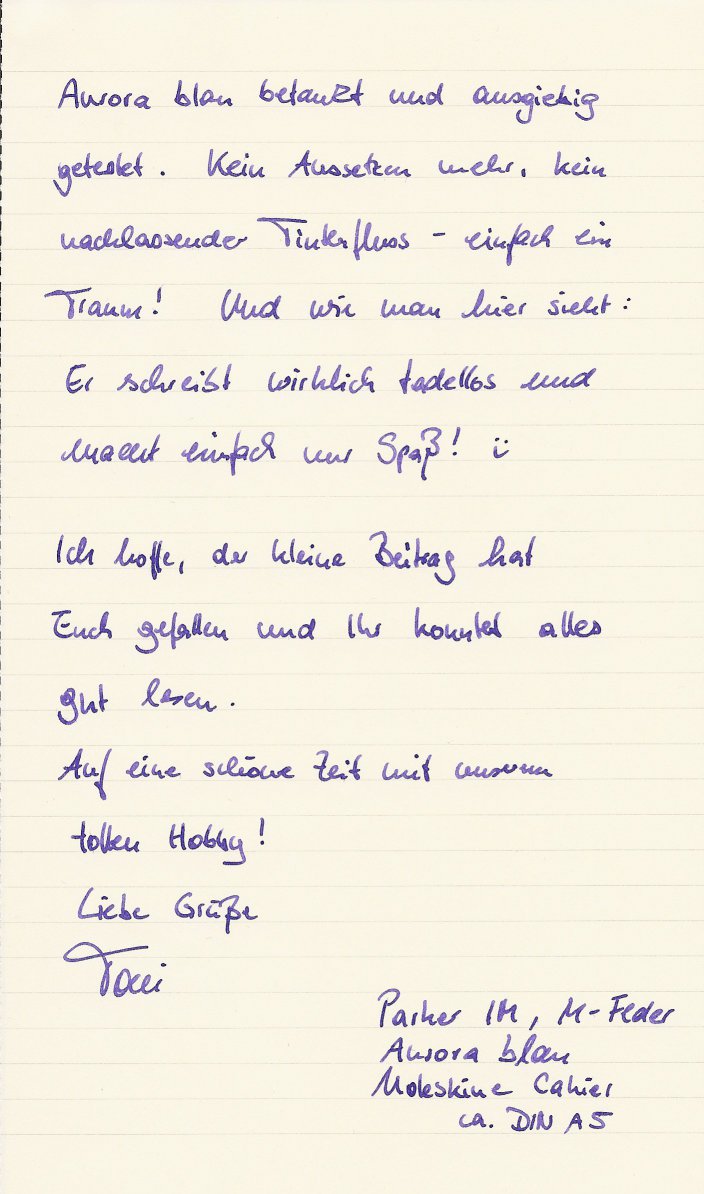 Aurora blau betankt und ausgiebig
getestet. Kein Aussetzen mehr, kein
nachlassender Tintenfluss - einfach ein
Traum! Und wie man hier sieht:
Er schreibt wirklich tadellos und
macht einfach nur Spaß! ü
Ich hoffe, der kleine Beitrag hat
Euch gefallen und Ihr konntet alles
gut lesen.
Auf eine schöne Zeit mit unserem
tollen Hobby!
Liebe Grüße
Toni
Parker IM, M-Feder
Aurora blau
Moleskine Cahier
ca. DIN A5